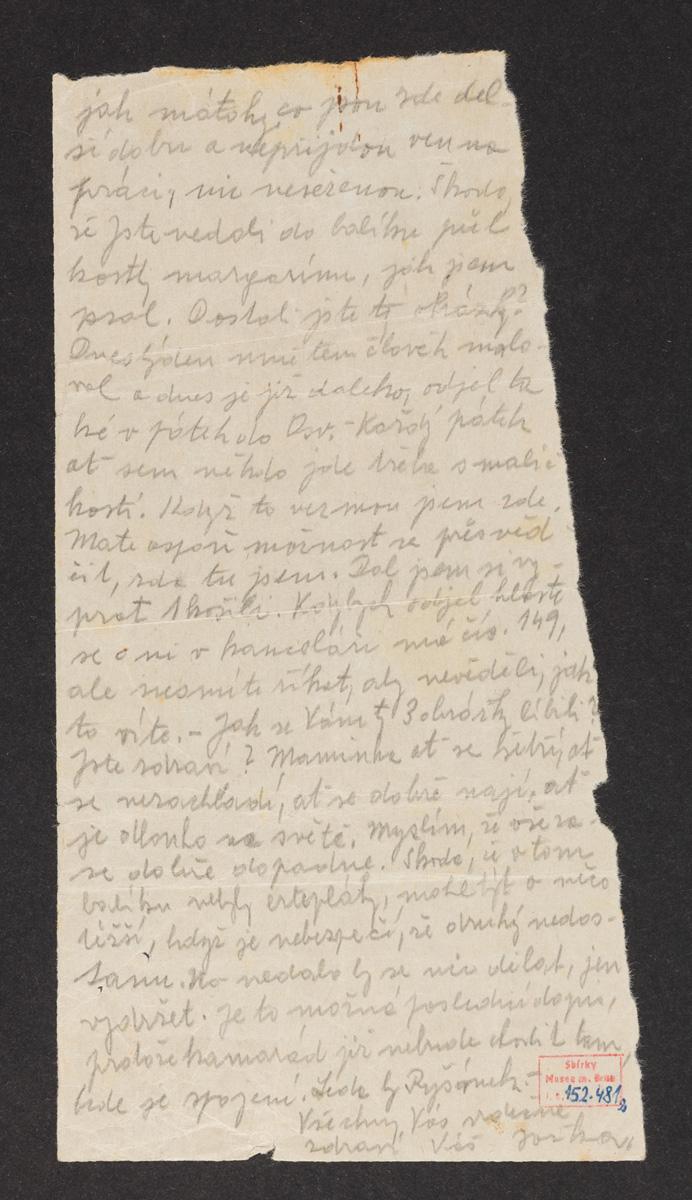 jak mátohy, co jsou zde del-
ší dobu a nepřijdou ven na
práci, nic neseženou. Škoda,
že jste nedali do balíku půl
kostky margarinu, jak jsem
psal. Dostali jste ty obrázky?
Dnes týden mně ten člověk malo-
val a dnes je již daleko, odjel ta
ké v pátek do Osv. - Každý pátek
ať sem někdo jde třeba s malič
kostí. Když to vezmou jsem zde.
Máte aspoň možnost se přesvěd
čit, zda tu jsem. Dal jsem si vy-
prat 1 košili. Kdybych odjel hlaste
se o ni v kanceláři má čís. 149,
ale nesmíte říkat, aby nevěděli, jak
to víte. - Jak se Vám ty 3 obrázky líbili?
Jste zdraví? Maminka ať se šetří, ať
se nezachladí, ať se dobře nají, ať
je dlouho na světě. Myslím, že vše za-
se dobře dopadne. Škoda, že v tom
balíku nebyly erteple, mohl být o něco
těžší, když je nebezpečí, že druhý nedos-
tanu. No nedalo by se nic dělat, jen
vydržet. Je to možná poslední dopis,
protože kamarád již nebude chodit tam,
kde je spojení. Leda by Ryšánek. -
Všechny Vás
zdraví Váš
Sbírky
Musea m. Brna
152.481